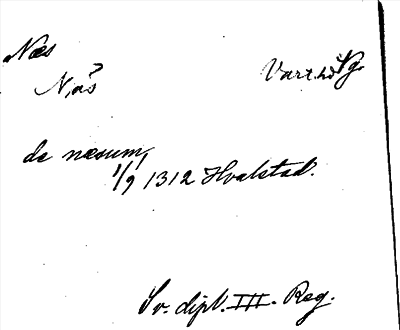 Næs
Nås
de næsum,
1/9 1312 Hvalstad.
Sv. dipl. III. Reg.